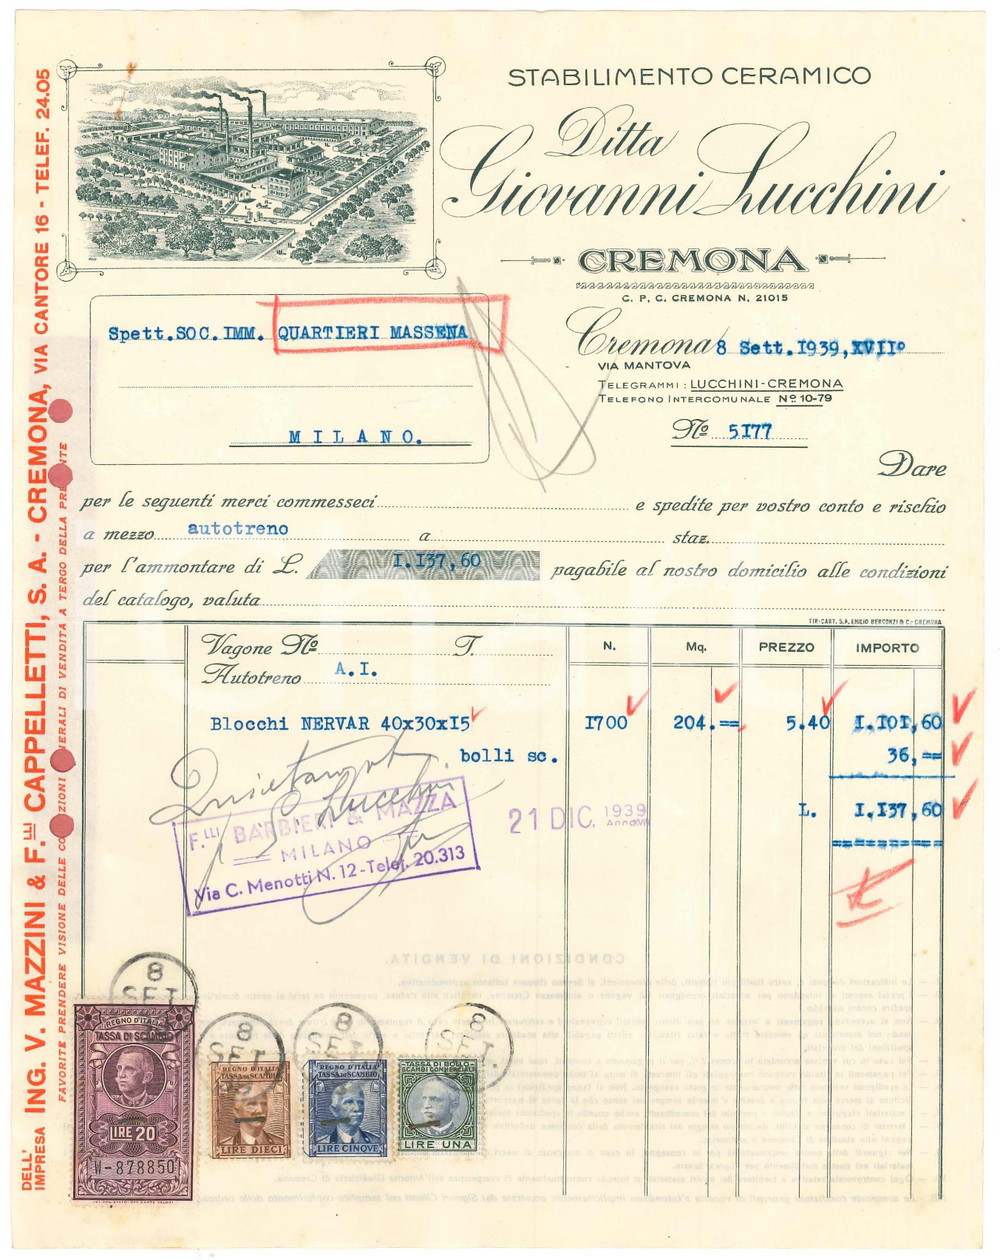 STABILIMENTO CERAMICO
Ditta
Giovanni Lucchini
CREMONA
C. P. C. CREMONA N. 21015
Spett.SOC.IMM. QUARTIERI MASSENA
MILANO.
Cremona 8 Sett.1939,XVII°
VIA MANTOVA
TELEGRAMMI: LUCCHINI-CREMONA
TELEFONO INTERCOMUNALE Nº 10-79
Nº 5177
Dare
per le seguenti merci commesseci e spedite per vostro conto e rischio
a mezzo autotreno a staz.
per l'ammontare di L. 1.137,60 pagabile al nostro domicilio alle condizioni
del catalogo, valuta
TIP.-CART. S.A. EMILIO BERGONZI & C.- CREMONA
Vagone Nº T. N. Mq. PREZZO IMPORTO
Autotreno A.I.
Blocchi NERVAR 40x30x15 1700 204.== 5.40 1.101,60
bolli sc. 36,==
L. 1.137,60
Quietanzata
Lucchini
F.LLI BARBIERI & MAZZA
MILANO
Via C. Menotti N. 12-Telef. 20.313
21 DIC. 1939
CONDIZIONI DI VENDITA
8
SET
8
SET
8
SET
8
SET
REGNO D'ITALIA
TASSA DI SCAMBIO
LIRE 20
W-878850
REGNO D'ITALIA
TASSA DI SCAMBIO
LIRE DIECI
REGNO D'ITALIA
TASSA DI SCAMBIO
LIRE CINQUE
TASSA DI BOLLO
SCAMBI COMMERCIALI
LIRE UNA
DELL' IMPRESA ING. V. MAZZINI & F.LLI CAPPELLETTI, S. A. - CREMONA, VIA CANTORE 16 - TELEF. 24.05
FAVORITE PRENDERE VISIONE DELLE CONDIZIONI GENERALI DI VENDITA A TERGO DELLA PRESENTE